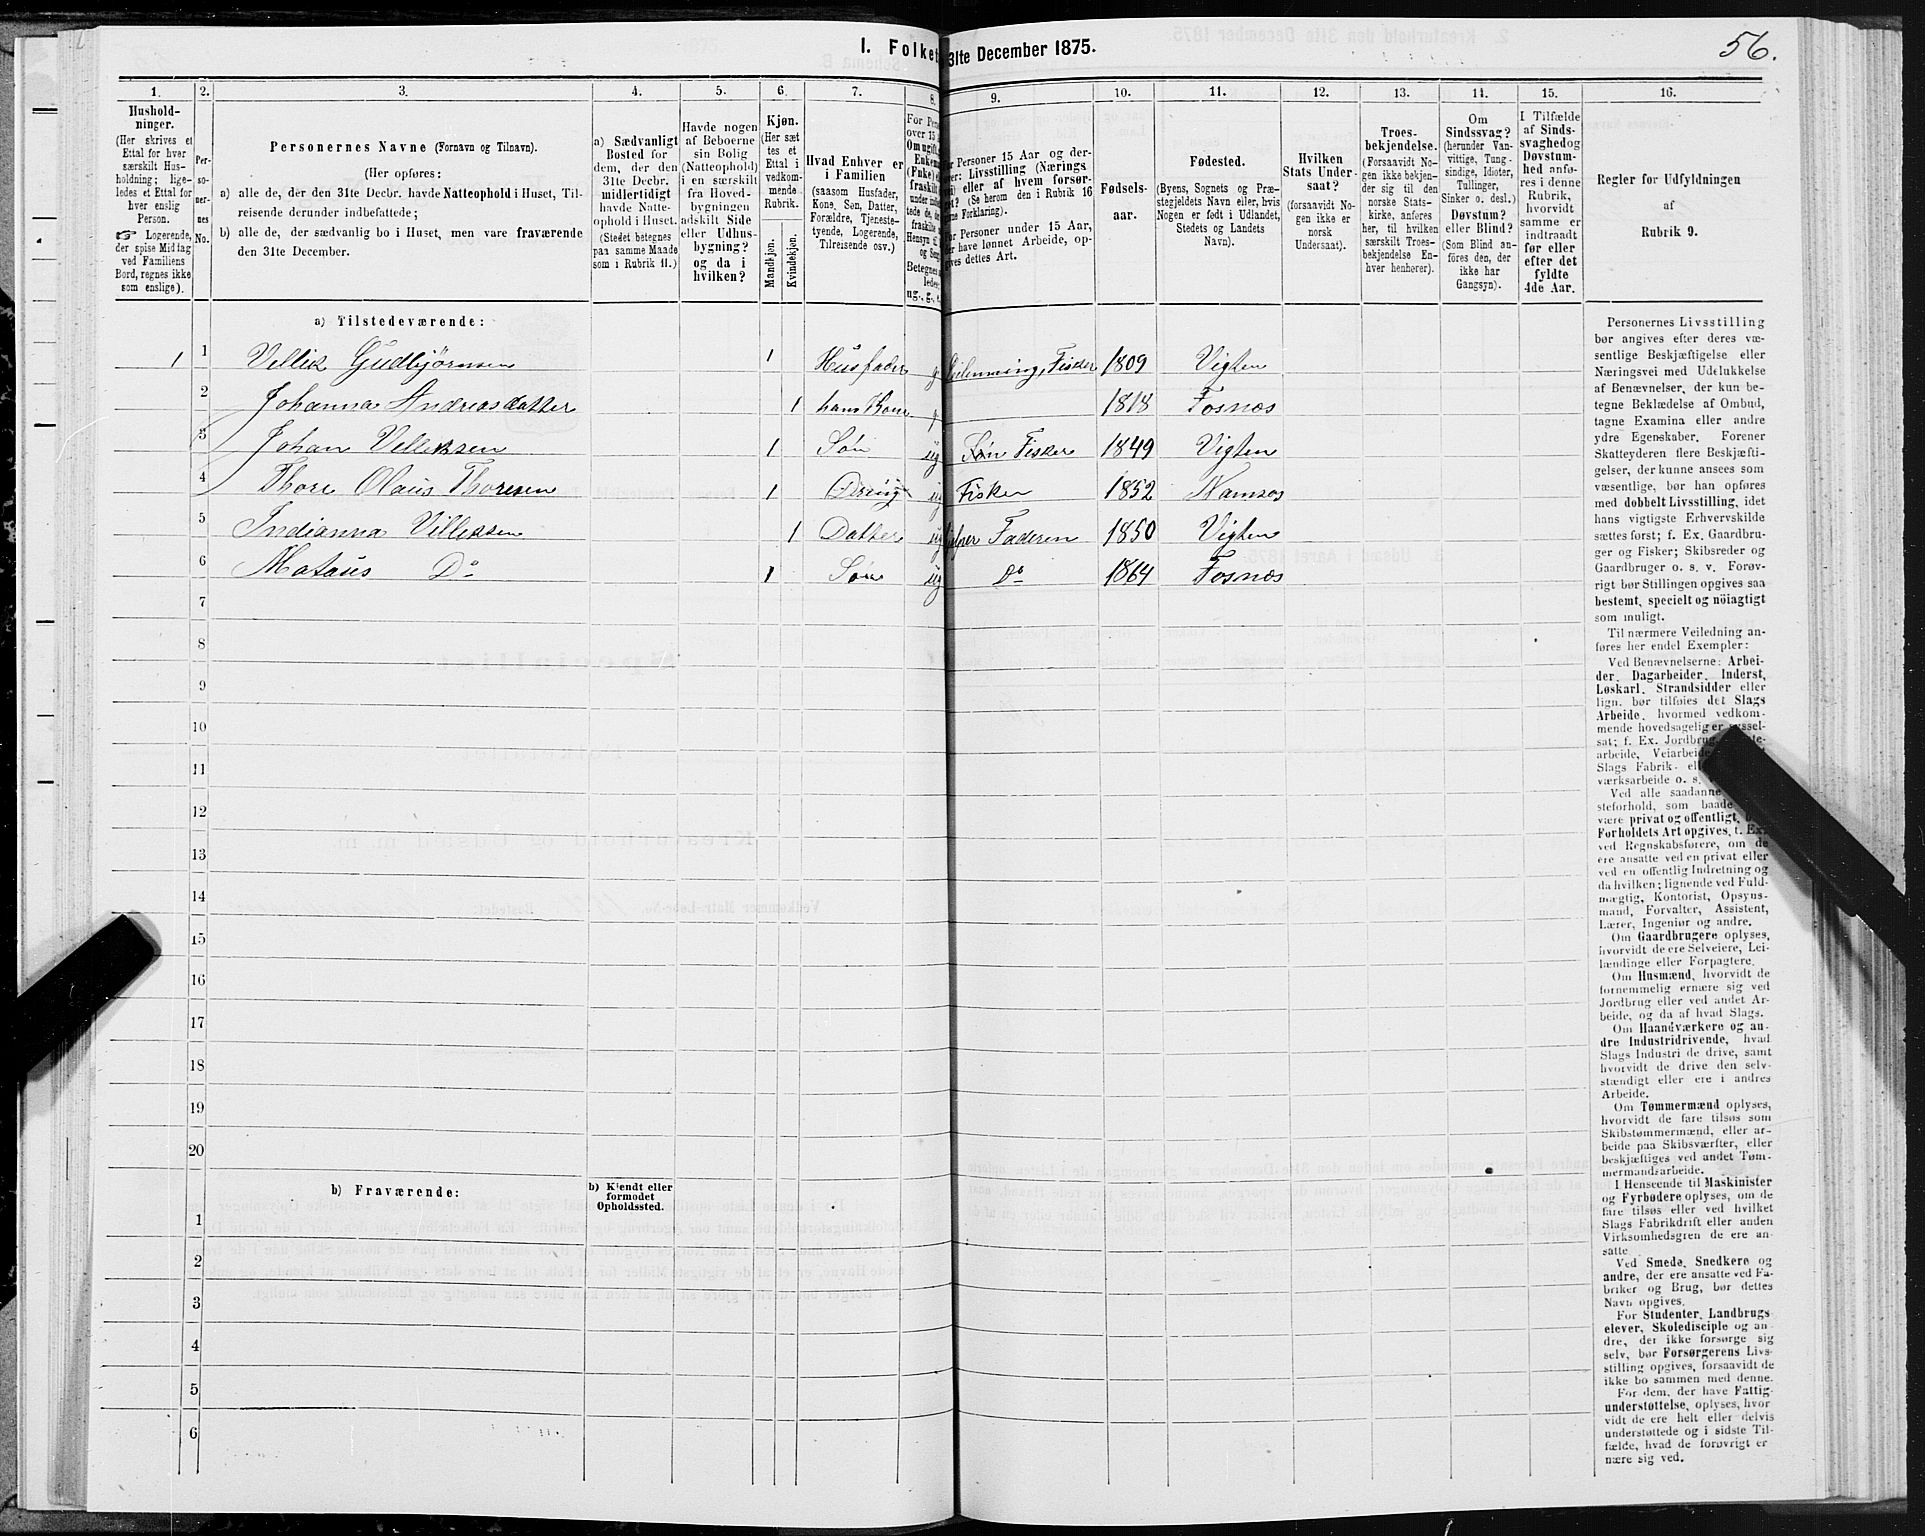 I. Folket
31te December 1875.
56.
1. 2. 3. 4. 5. 6. 7. 8. 9. 10. 11. 12. 13. 14. 15. 16.
Hushold-
ninger.
(Her skrives et
Ettal for hver
særskilt Hus-
holdning; lige-
ledes et Ettal for
hver enslig
Person.
☞ Logerende,
der spise Middag
ved Familiens
Bord, regnes ikke
som enslige).
Per-
so-
ner-
nes
No.
Personernes Navne (Fornavn og Tilnavn).
(Her opføres:
a) alle de, der den 31te Decbr. havde Natteophold i Huset, Til-
reisende derunder indbefattede;
b) alle de, der sædvanlig bo i Huset, men vare fraværende
den 31te December.
a) Sædvanligt
Bosted for
dem, der den
31te Decbr.
midlertidigt
havde Natte-
ophold i Huset.
(Stedet betegnes
paa samme Maade
som i Rubrik 11.)
Havde nogen
af Beboerne
sin Bolig
(Natteophold)
i en særskilt
fra Hoved-
bygningen
adskilt Side
eller Udhus-
bygning?
og da i
hvilken?
Kjøn.
(Her sæt
tes et
Ettal i
vedkom-
mende
Rubrik.
Mandkjøn.
Kvindekjøn.
Hvad Enhver er
i Familien
(saasom Husfader,
Kone, Søn, Datter,
Forældre, Tjeneste-
tyende, Logerende,
Tilreisende osv.)
For Pers
over 15
Om ugift,
Enkem
(Enke)
fraskilt
under
tede de,
fraskilte
Hensyn til
og Seng
Betegnes
ledes:
ug., g., e.
For Personer 15 Aar og der-
over: Livsstilling (Nærings
vei) eller af hvem forsør-
get? (Se herom den i Rubrik 16
givne Forklaring).
For Personer under 15 Aar,
der have lønnet Arbeide, op-
gives dettes Art.
Fødsels-
aar.
Fødested.
(Byens, Sognets og Præ-
stegjeldets Navn eller, hvis
Nogen er født i Udlandet,
Stedets og Landets
Navn).
Hvilken
Stats Under-
saat?
(forsaavidt No-
gen ikke er
norsk
Undersaat).
Troes-
bekjendelse.
(Forsaavidt No-
gen ikke bekjen-
der sig til den
norske Stats-
kirke, anføres
her, til hvilken
særskilt Troes-
bekjendelse En-
hver henhører).
Om
Sindssvag?
(herunder Van-
vittige, Tung-
sindige, Idioter,
Tullinger,
Sinker o. desl.)
Døvstum?
eller Blind?
(Som Blind an-
føres den, der
ikke har
Gangsyn).
I Tilfælde
af Sinds-
svaghed og
Døvstum-
hed anfø-
res i denne
Rubrik,
hvorvidt
samme er
indtraadt
før eller
efter det
fyldte
4de Aar.
Regler for Udfyldningen
af
Rubrik 9.
a) Tilstedeværende:
1 1 Vellik Gudbjørnsen 1 Husfader g Leilænding, Fisker 1809 Vigten
2 Johanna Andreasdatter 1 hans Kone g 1818 Fosnæs
3 Johan Velleksen 1 Søn ug Søn Fisker 1849 Vigten
4 Thore Olaus Thoresen 1 Dreng ug Fisker 1852 Namsos
5 Indianna Villeksen 1 Datter ug hjelper Faderen 1850 Vigten
6 Mataus Do 1 Søn ug Do 1864 Fosnæs
7
8
9
10
11
12
13
14
15
16
17
18
19
20
b) Fraværende:
b) Kjendt eller
formodet
Opholdssted.
1
2
3
4
5
6
Personernes Livsstilling
bør angives efter deres væ-
sentlige Beskjæftigelse eller
Næringsvei med Udelukkelse
af Benævnelser, der kun be-
tegne Beklædelse af Ombud,
tagne Examina eller andre
ydre Egenskaber. Forener
Skatteyderen flere Beskjæfti-
gelser, der kunne ansees som
væsentlige, bør han opføres
med dobbelt Livsstilling, idet
hans vigtigste Erhvervskilde
sættes først; f. Ex. Gaardbru-
ger og Fisker; Skibsreder og
Gaardbruger o. s. v. Forøv-
rigt bør Stillingen opgives saa
bestemt, specielt og nøiagtigt
som muligt.
Til nærmere Veiledning an-
føres her endel Exempler:
Ved Benævnelserne: Arbei-
der, Dagarbeider, Inderst,
Løskarl, Strandsidder eller
lign. bør tilføies det Slags
Arbeide, hvormed vedkom-
mende hovedsagelig er syssel-
sat; f. Ex. Jordbrug
arbeide, Veiarbeide
Slags Fabrik- el
værksarbeide o. s.
Ved alle saadanne
steforhold, som baade
være privat og offentligt,
Forholdets Art opgives, f. Ex.
ved Regnskabsførere, om de
ere ansatte ved en privat eller
ved en offentlig Indretning og
da hvilken; lignende ved Fuld-
mægtig, Kontorist, Opsyns-
mand, Forvalter, Assistent,
Lærer, Ingeniør og andre.
Om Gaardbrugere oplyses,
hvorvidt de ere Selveiere, Lei-
lændinge eller Forpagtere.
Om Husmænd, hvorvidt de
fornemmelig ernære sig ved
Jordbrug eller ved andet Ar-
beide, og da af hvad Slags.
Om Haandværkere og an-
dre Industridrivende, hvad
Slags Industri de drive, samt
hvorvidt de drive den selv-
stændigt eller ere i andres
Arbeide.
Om Tømmermænd oplyses,
hvorvidt de fare tilsøs som
Skibstømmermænd, eller ar-
beide paa Skibsværfter, eller
beskjæftiges ved andet Tøm-
mermandsarbeide.
I Henseende til Maskinister
og Fyrbødere oplyses, om de
fare tilsøs eller ved hvilket
Slags Fabrikdrift eller anden
Virksomhedsgren de ere an-
satte
Ved Smede, Snedkere og
andre, der ere ansatte ved Fa-
briker og Brug, bør dettes
Navn opgives.
For Studenter, Landbrugs-
elever, Skoledisciple og an-
dre, der ikke forsørge sig
selv, bør Forsørgerens Livs-
stilling opgives, forsaavidt de
ikke bo sammen med denne.
For dem, der have Fattig-
understøttelse, oplyses, hvor
vidt de ere helt eller delvis
understøttede og i sidste Til-
fælde, hvad de forøvrigt er
nære sig ved.